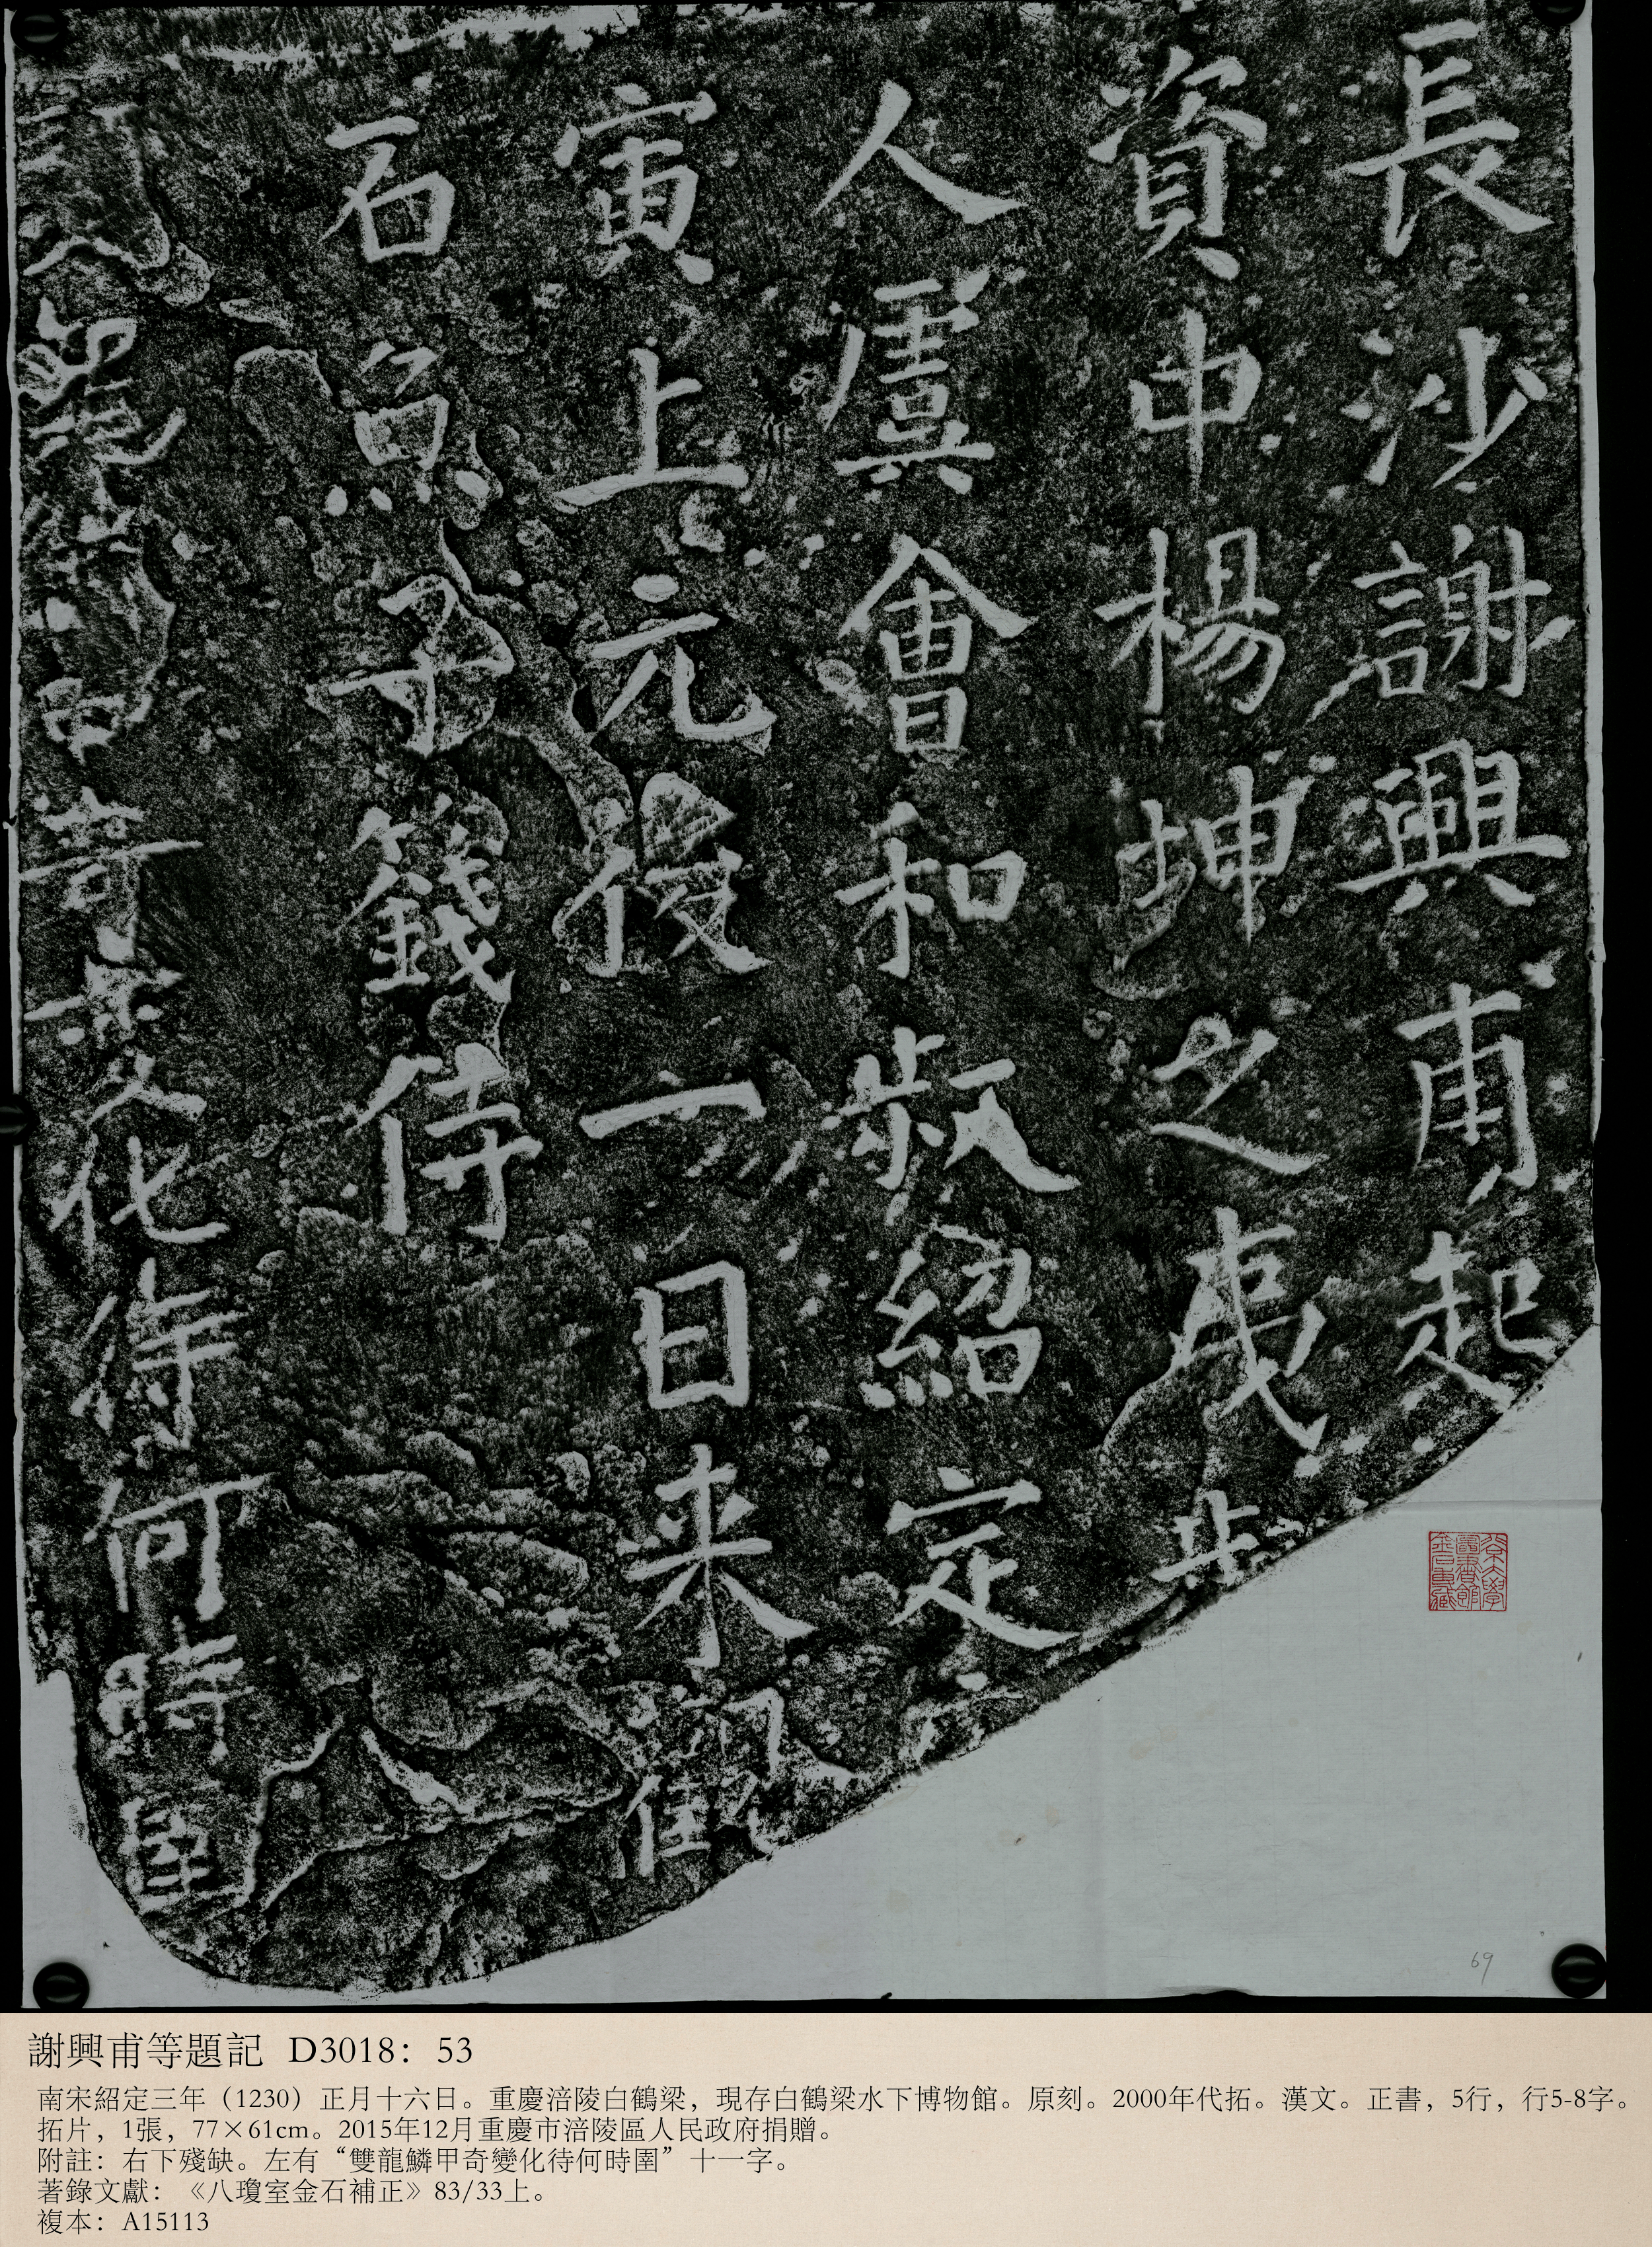 長沙謝興甫起
資中楊坤之夷
人虞會和叔紹定
寅上元後一日来觀
石魚子籛侍
鱗甲奇變化待何時圉
69
謝興甫等題記 D3018：53
南宋紹定三年（1230）正月十六日。重慶涪陵白鶴梁，現存白鶴梁水下博物館。原刻。2000年代拓。漢文。正書，5行，行5-8字。
拓片，1張，77×61cm。2015年12月重慶市涪陵區人民政府捐贈。
附註：右下殘缺。左有“雙龍鱗甲奇變化待何時圉”十一字。
著錄文獻：《八瓊室金石補正》83/33上。
複本：A15113